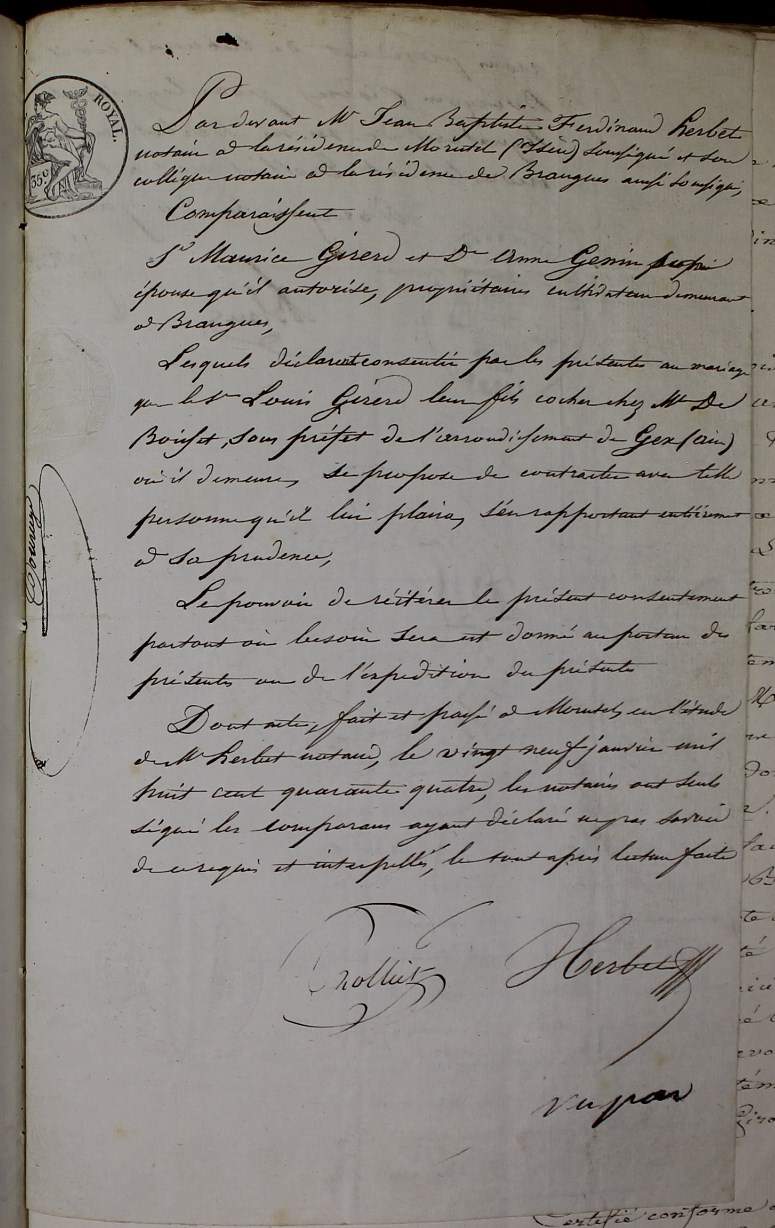 ROYAL.
35c
Par devant Me Jean Baptiste Ferdinand Herbet
notaire à la résidence de Morestel (Isère) soussigné et son
collègue notaire à la résidence de Brangues aussi soussigné,
Comparaissent
Sr Maurice Girerd et De Anne Genin
épouse qu'il autorise, propriétaires cultivateurs demeurant
à Brangues,
Lesquels déclarent consentir par les présentes au mariage
que le Sr Louis Girerd leur fils cocher chez Mr De
Boisset, sous préfet de l'arrondissement de Gex (ain)
où il demeure, se propose de contracter avec telle
personne qu'il lui plaira, s'en rapportant entièrement
à sa prudence,
Le pouvoir de réitérer le présent consentement
partout où besoin sera est donné au porteur des
présentes ou de l'expedition des présentes
Dont acte, fait et passé à Morestel, en l'étude
de Me Herbet notaire, le vingt neuf janvier mil
huit cent quarante quatre, les notaires ont seuls
signé les comparans ayant déclaré ne pas savoir
de ce requis et interpellés, le tout après lecture faite
Trolliet
Herbet
vu par
Certifié conforme